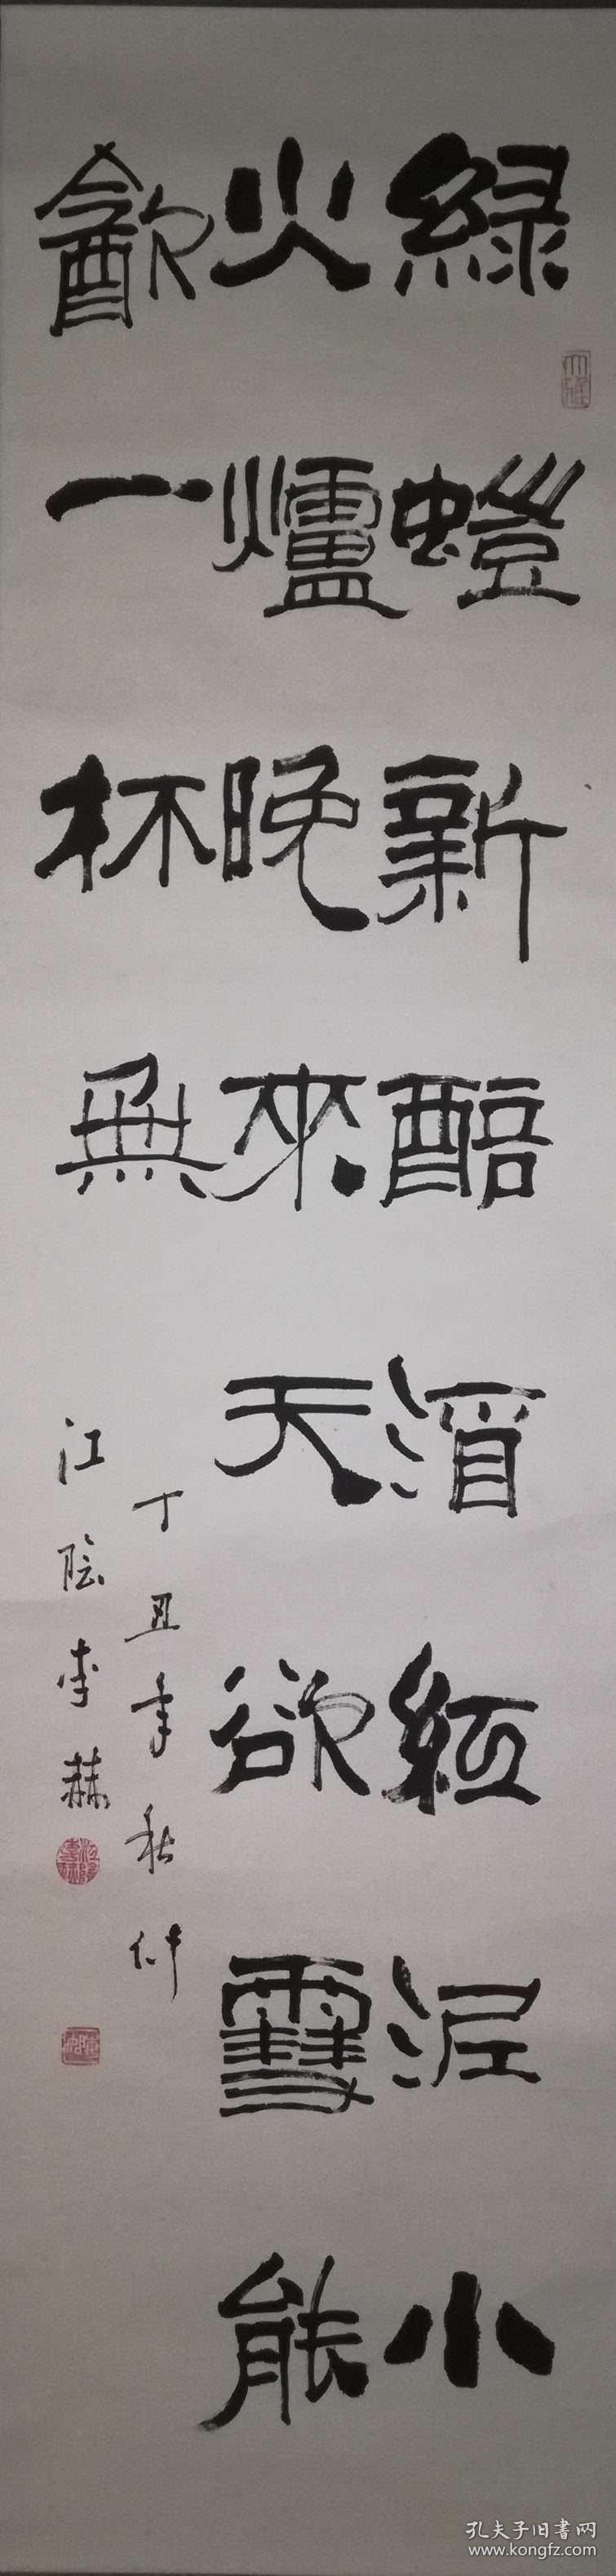 綠螘新醅酒紅泥小
火爐晚來天欲雪能
㱃一杯無
丁丑年秋仲
江陰李赫
孔夫子旧书网
www.kongfz.com